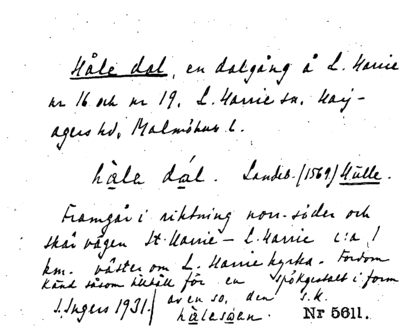 Håle dal, en dalgång å L. Harrie
nr 16 och nr 19, L. Harrie sn, Harj-
agers hd, Malmöhus l.
håla dál. Landeb. (1569) Hulle.
Framgår i riktning norr-söder och
skär vägen St. Harrie – L. Harrie c:a 1
km. väster om L. Harrie kyrka. Fordom
känd såsom tillhåll för en spökgestalt i form
av en so, den s.k.
hålasoan.
S. Ingers 1931.
Nr 5611.